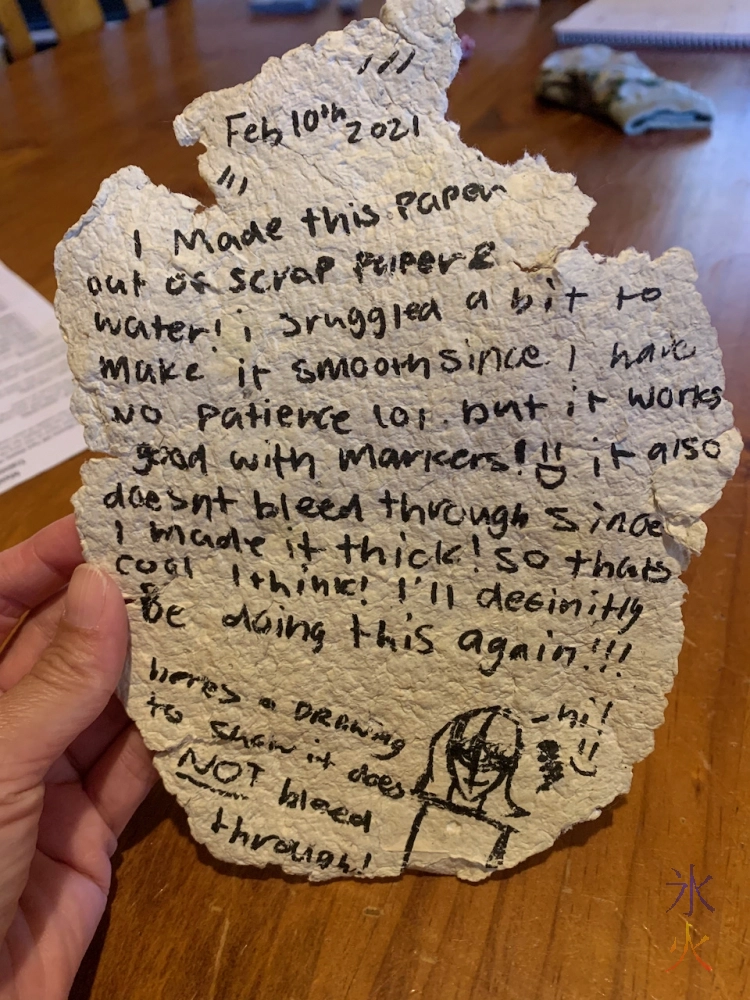 Feb 10th 2021
I Made this Paper
out of scrap paper &
water! i sruggled a bit to
make it smooth since I have
no patience lol. but it works
good with markers! :D it also
doesnt bleed through since
I made it thick! so thats
cool I think! I'll definitly
be doing this again!!!
heres a DRAWING
to show it does
NOT bleed
through!
- hi!
氷
火